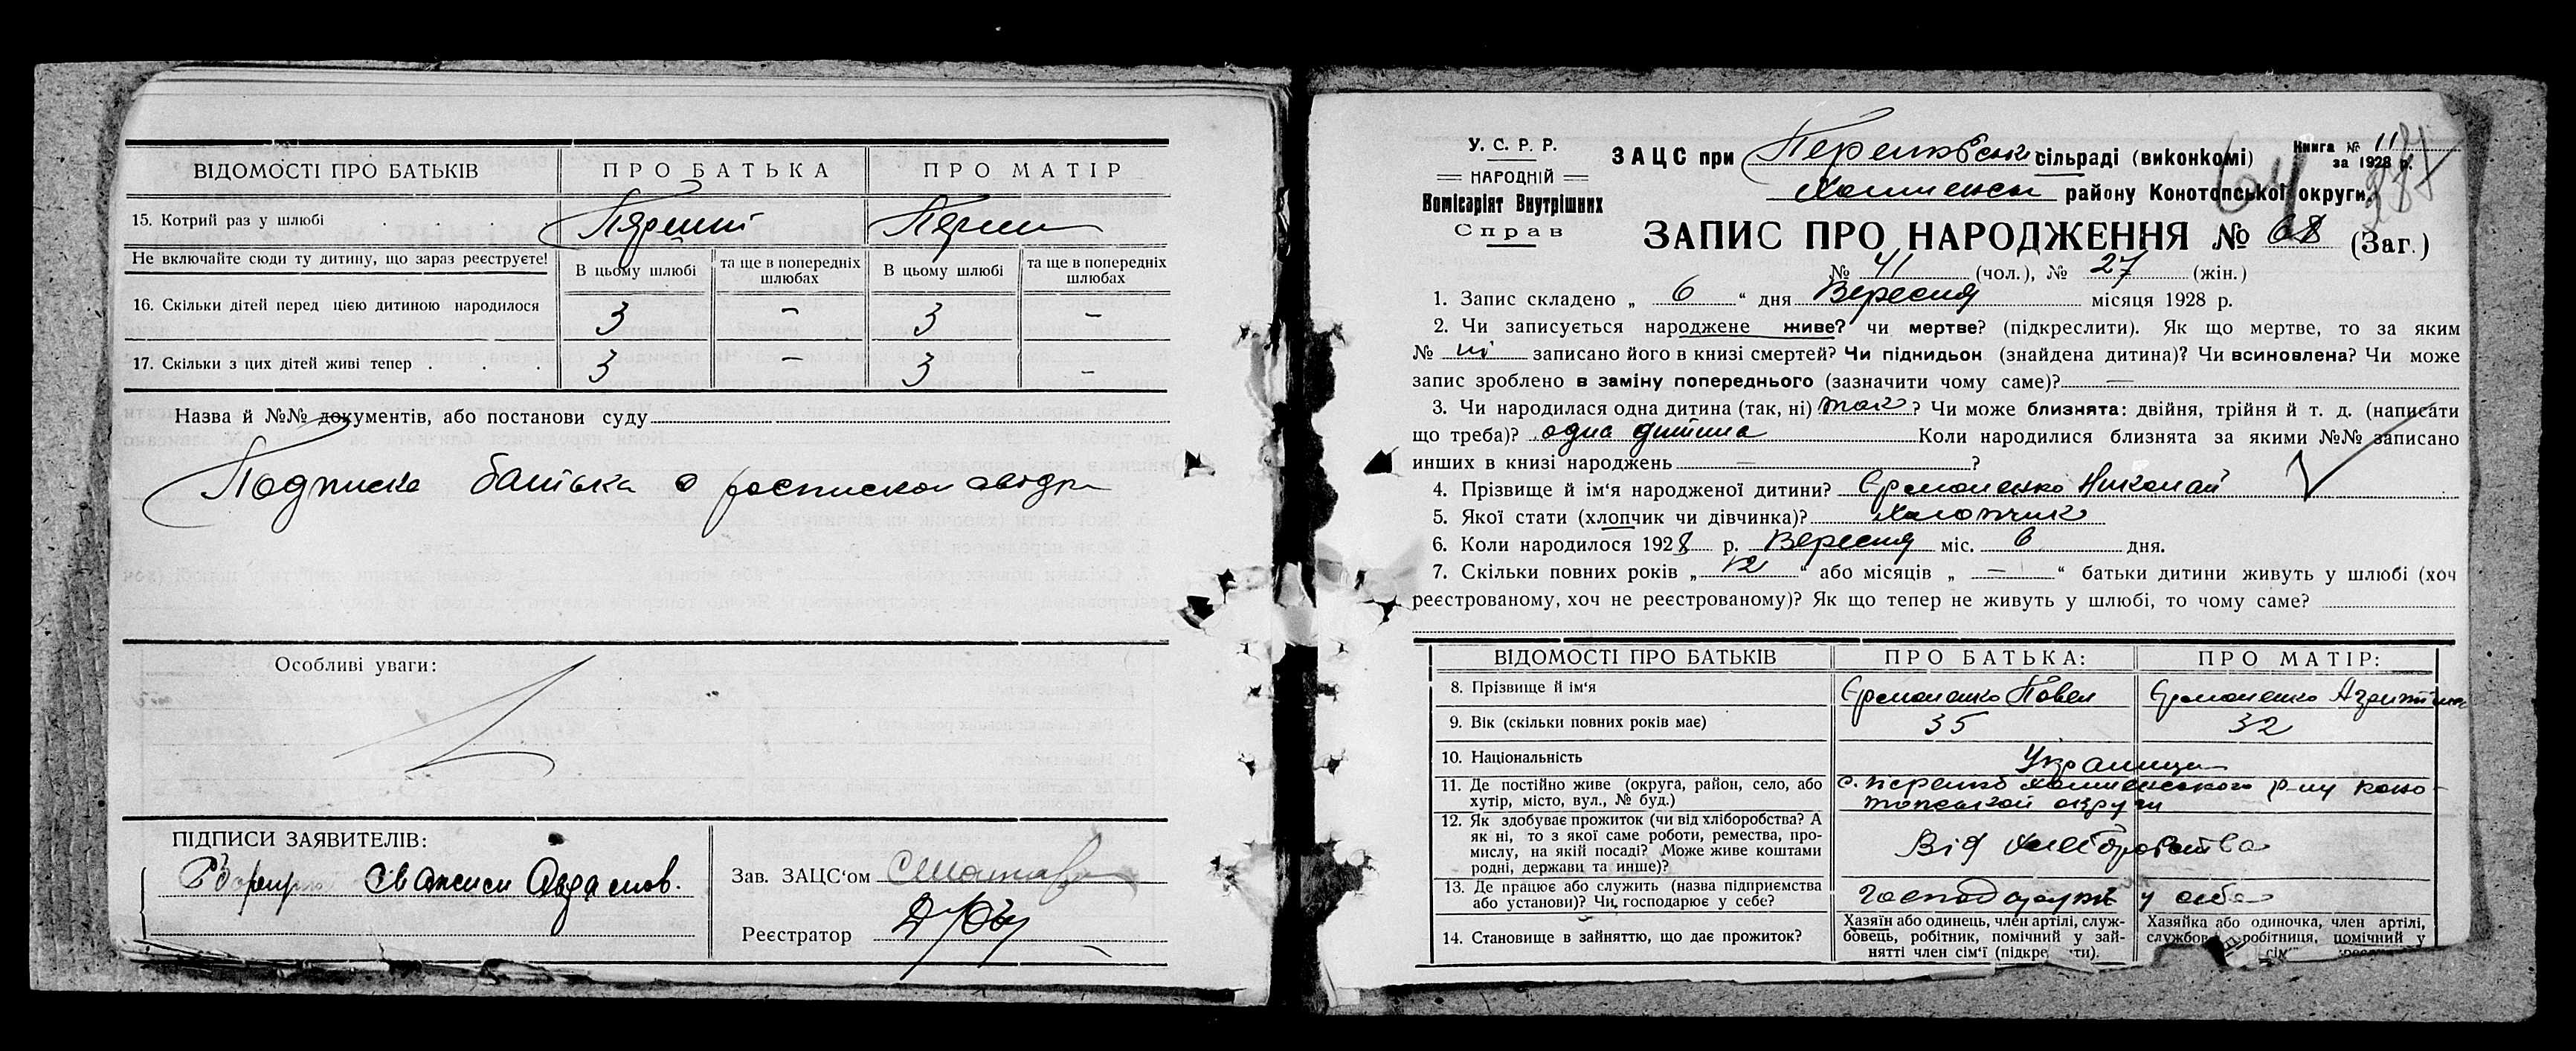 ВІДОМОСТІ ПРО БАТЬКІВ ПРО БАТЬКА ПРО МАТІР
15. Котрий раз у шлюбі
Не включайте сюди ту дитину, що зараз реєструєте!
В цьому шлюбі та ще в попередніх шлюбах В цьому шлюбі та ще в попередніх шлюбах
16. Скільки дітей перед цією дитиною народилося 3 - 3 -
17. Скільки з цих дітей живі тепер 3 - 3 -
Назва й №№ документів, або постанови суду
Подписка батька о
Особливі уваги:
ПІДПИСИ ЗАЯВИТЕЛІВ:
Зав. ЗАЦС'ом
Реєстратор
У. С. Р. Р.
НАРОДНІЙ
Комісаріят Внутрішних
Справ
ЗАЦС при сільраді (виконкомі)
Книга № 11
за 1928 р.
району Конотопської округи
ЗАПИС ПРО НАРОДЖЕННЯ № 68 (Заг.)
№ 41 (чол.), № 27 (жін.)
1. Запис складено „ 6 “ дня Вересня місяця 1928 р.
2. Чи записується народжене живе? чи мертве? (підкреслити). Як що мертве, то за яким
№ ні записано його в книзі смертей? Чи підкидьок (знайдена дитина)? Чи всиновлена? Чи може
запис зроблено в заміну попереднього (зазначити чому саме)? —
3. Чи народилася одна дитина (так, ні) так ? Чи може близнята: двійня, трійня й т. д. (написати
що треба)? одна дитина Коли народилися близнята за якими №№ записано
инших в книзі народжень — ?
4. Прізвище й ім'я народженої дитини? Єрмоленко Николай
5. Якої стати (хлопчик чи дівчинка)? Хлопчик
6. Коли народилося 1928 р. Вересня міс. 6 дня.
7. Скільки повних років „ 12 “ або місяців „ — “ батьки дитини живуть у шлюбі (хоч
реєстрованому, хоч не реєстрованому)? Як що тепер не живуть у шлюбі, то чому саме?
ВІДОМОСТІ ПРО БАТЬКІВ ПРО БАТЬКА: ПРО МАТІР:
8. Прізвище й ім'я Єрмоленко Павел Єрмоленко
9. Вік (скільки повних років має) 35 32
10. Національність Українци
11. Де постійно живе (округа, район, село, або
хутір, місто, вул., № буд.)
12. Як здобуває прожиток (чи від хліборобства? А
як ні, то з якої саме роботи, ремества, про-
мислу, на якій посаді? Може живе коштами
родні, держави та инше)?
Від хліборобства
13. Де працює або служить (назва підприємства
або установи)? Чи господарює у себе?
у себе
14. Становище в зайняттю, що дає прожиток?
Хазяїн або одинець, член артілі, служ-
бовець, робітник, помічний у зай-
нятті член сім'ї
Хазяйка або одиночка, член артілі,
робітниця, помічний у